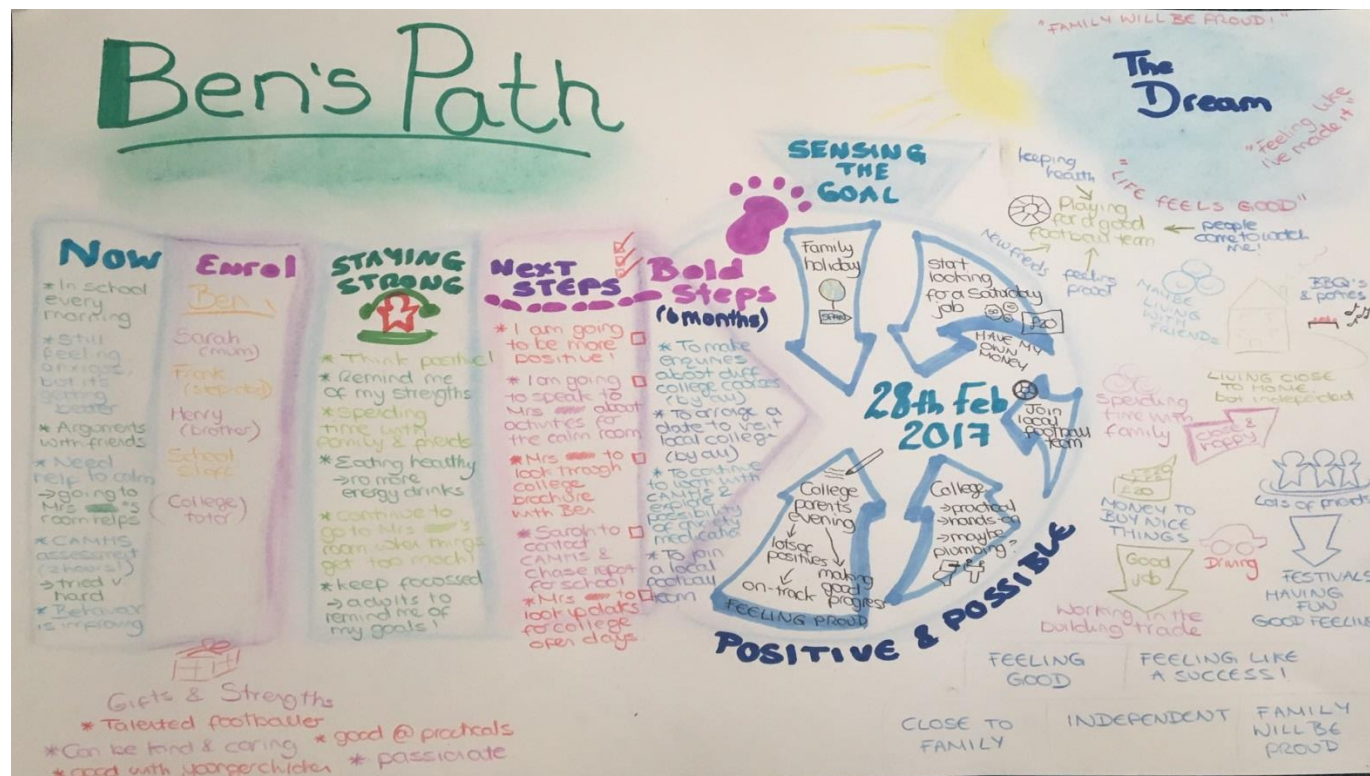 Ben's Path
Now
* In school
every
morning
* Still
feeling
anxious
but it's
getting
better
* Arguments
with friends
* Need
help to calm
→ going to
Mrs 's
room helps
* CAMHS
assessment
(2 hours!)
→ tried v.
hard
* Behaviour
is improving
Enrol
Ben
Sarah
(mum)
Frank
(step-dad)
Henry
(brother)
School
staff
(College)
tutor
STAYING
STRONG
* Think positive!
* Remind me
of my strengths
* Spending
time with
family & friends
* Eating healthy
→ no more
energy drinks
* Continue to
go to Mrs 's
room when things
get too much!
* Keep focussed
→ adults to
remind me of
my goals!
NEXT
STEPS
* I am going
to be more
positive!
* I am going
to speak to
Mrs about
activities for
the calm room
* Mrs to
look through
college
brochure
with Ben
* Sarah to
contact
CAMHS &
chase report
for school
* Mrs to
look up dates
for college
open days
Bold
Steps
(6 months)
* To make
enquiries
about diff
college courses
(by all)
* To arrange a
date to visit
local college
(by all)
* To continue
with
CAMHS
* To join
a local
football
team
SENSING
THE
GOAL
Family
holiday
start
looking
for a Saturday
job
£20
HAVE MY
OWN
MONEY
28th Feb
2017
Join
local
football
team
College
parents
evening
lots of
positives
making
good
progress
on-track
FEELING PROUD
College
→ practical
→ hands-on
→ maybe
plumbing?
POSITIVE & POSSIBLE
"FAMILY WILL BE PROUD!"
The
Dream
"Feeling like
I've made it"
"LIFE FEELS GOOD"
keeping
health
Playing
for a good
football team
people
come to watch
me!
feeling
proud
MAYBE
LIVING
WITH
FRIENDS
BBQ'S
& parties
LIVING CLOSE
TO HOME
but independent
Spending
time with
family
£20
MONEY TO
BUY NICE
THINGS
Good
job
Driving
Working in the
building trade
Lots of friends
FESTIVALS
HAVING
FUN
GOOD FEELING
FEELING
GOOD
FEELING LIKE
A SUCCESS!
CLOSE TO
FAMILY
INDEPENDENT
FAMILY
WILL BE
PROUD
Gifts & Strengths
* Talented footballer
* good @ practicals
* Can be kind & caring
* passionate
* good with younger children